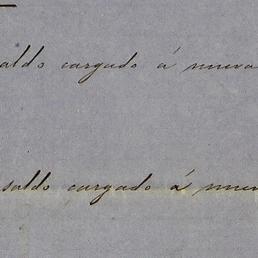 aldo cargado á nueva
saldo cargado á nuev